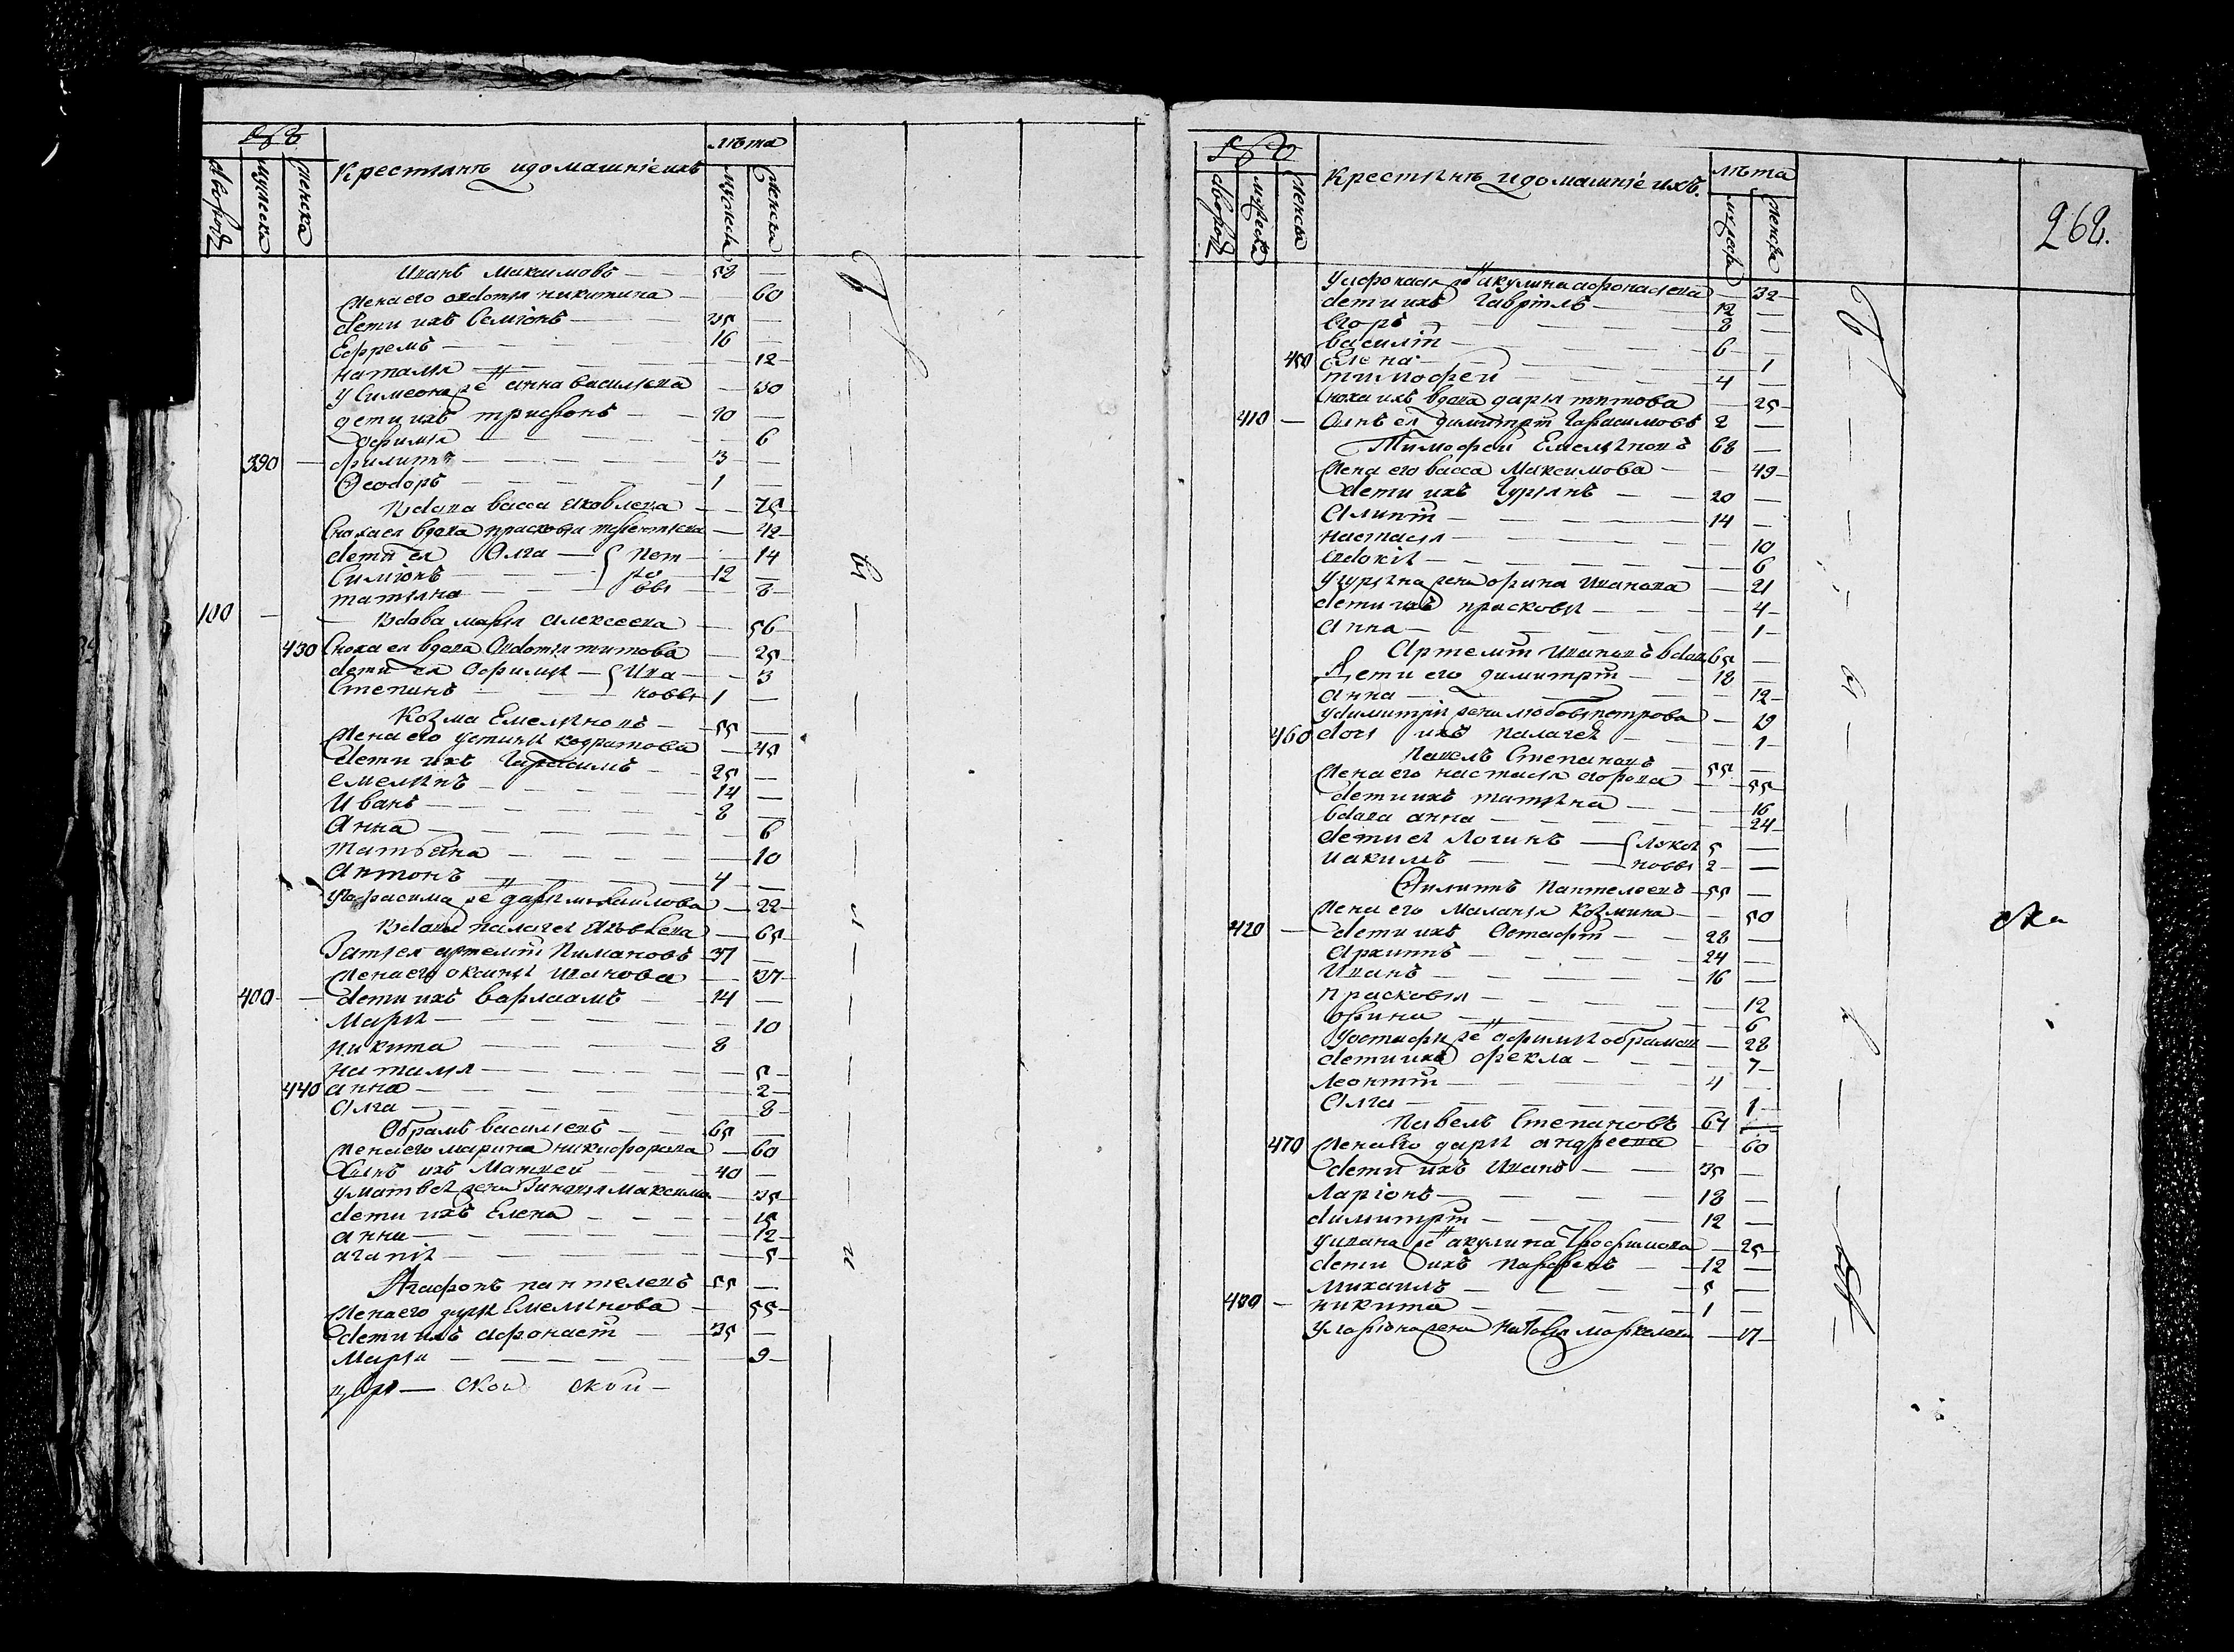 лѣта
крестянъ и домашнiе ихъ
дворовъ мужеска женска
мужеска женска
Иванъ Максимовъ — 58 —
жена его авдотья никитина — 60
дети ихъ Семiонъ — 35 —
Ефремъ — 16 —
наталья — 12
у Симеона же анна василиева — 30
дети ихъ трифонъ — 10 —
офимья — 6
390 — филипъ — 3 —
Феодоръ — 1 —
вдова васса яковлева — 75
сноха ея вдова прасковья — 42
дети ея Олга — Пет — 14
Симiонъ — ро — 12 —
татьяна — вы — 8
100 — вдова марья алексеева — 56
430 сноха ея вдова авдотья титова — 25
дети ея офимья — Ива — 3
Степанъ — новы 1 —
Козма Емельяновъ — 55 —
жена его устинья кодратова — 45
дети ихъ Гарасимъ — 25 —
емельянъ — 14 —
Иванъ — 8 —
Анна — 6
татьяна — 10
Антонъ — 4 —
у Гарасима же дарья михаилова — 22
вдова палагея — 65
Зят ея артемiй Пимановъ — 37 —
жена его оксинья Иванова — 37
400 — дети ихъ варлаамъ — 14 —
Марья — 10
никита — 8
наталья — 5
440 анна — 2
Олга — 8
Обрамъ василиевъ — 65 —
жена его марина никифорова — 60
Сынъ ихъ Матвей — 40 —
у матвея жена Зиновья Максимо — 35
дети ихъ Елена — 15
анна — 12
агапiя — 5
Агафонъ пантелеевъ — 55 —
жена его дарья Емельянова — 55
дети ихъ афонасiй — 35 —
Марья — 9
— ской ской —
лѣта
крестьянъ и домашнiе ихъ
дворовъ мужеска женска
мужеска женска
262.
у афонасья же акулина афонасиева — 32
дети ихъ Гаврiлъ — 12 —
егоръ — 8 —
василiй — 6 —
450 Елена — 1
тимофей — 4 —
сноха ихъ вдова дарья титова — 25
410 — Сынъ ея димитрiй Гарасимовъ 2 —
Тимофей Емельяновъ 68 —
жена его васса Максимова — 49
дети ихъ Гурьянъ — 20 —
Алипiй — 14 —
настасья — 10
евдокiя — 6
у гурьяна жена орина Иванова — 21
дети ихъ прасковья — 4
Анна — 1
Артемiй Ивановъ вдов 65 —
Дети его димитрiй — 18 —
анна — 12
у димитрiя жена любовь петрова — 19
460 дочь ихъ палагея — 1
Павелъ Степановъ — 55 —
жена его настасья егорова — 55
дети ихъ татьяна — 16
вдова анна — 24
дети ея Логинъ — 5 —
иакимъ — 2 —
Филипъ пантелеевъ — 55 —
жена его Маланья Козмина — 50
420 — дети ихъ Остафiй — 28 —
Архипъ — 24 —
Иванъ — 16 —
прасковья — 12
орина — 6
у остафья же офимья обрамов — 28
дети ихъ фекла — 7
Леонтiй — 4 —
Олга — 1
Павелъ Степановъ — 67 —
470 жена его дарья андреева — 60
дети ихъ Иванъ — 35 —
Ларiонъ — 18 —
димитрiй — 12 —
у ивана же акулина трофимова — 25
дети ихъ парфенъ — 12 —
Михаилъ — 5 —
никита — 1 —
у ларiона жена — 17